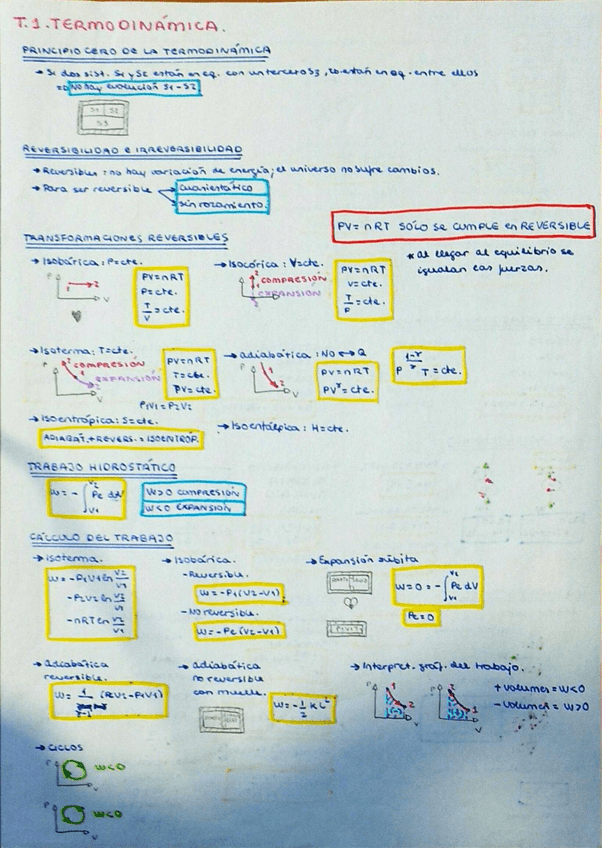 T.1. TERMODINÁMICA.
PRINCIPIO CERO DE LA TERMODINÁMICA
→ Si dos sist. S1 y S2 están en eq. con un tercero S3, lo están en eq. entre ellos
⇒ No hay evolución S1-S2
S1 S2
S3
REVERSIBILIDAD e IRREVERSIBILIDAD
→ Reversibles: no hay variación de energía; el universo no sufre cambios.
→ Para ser reversible
cuasiestático
sin rozamiento.
PV = nRT SÓLO SE CUMPLE en REVERSIBLE
* Al llegar al equilibrio se
igualan las fuerzas.
TRANSFORMACIONES REVERSIBLES
→ Isobárica: P=cte.
P 1 2 V
PV=nRT
P=cte.
T/V = cte.
→ Isocórica: V=cte.
COMPRESIÓN
EXPANSIÓN
P V
PV=nRT
V=cte.
T/P = cte.
→ Isoterma: T=cte.
COMPRESIÓN
EXPANSIÓN
P V
PV=nRT
T=cte.
PV=cte.
P1V1=P2V2
→ adiabática: NO ↔ Q
P 1 2 V
PV=nRT
PV^γ=cte.
P^(1-γ/γ) T = cte.
→ Isoentrópica: S=cte.
ADIABÁT.+REVERS.=ISOENTRÓP.
→ Isoentálpica: H=cte.
TRABAJO HIDROSTÁTICO
W = -∫ V1 V2 Pe dV
W>0 COMPRESIÓN
W<0 EXPANSIÓN
CÁLCULO DEL TRABAJO
→ isoterma.
W = -P1V1 ln V2/V1
-P2V2 ln V2/V1
-nRT ln V2/V1
→ Isobárica.
-Reversible.
W=-P1(V2-V1)
-No reversible.
W=-Pe(V2-V1)
→ Expansión súbita
W=0=-∫ V1 V2 Pe dV
Pe=0
→ adiabática
reversible.
W = 1/γ-1 (P2V2-P1V1)
→ adiabática
no reversible
con muelle.
W=-1/2 KL²
→ Interpret. gráf. del trabajo.
P 1 2 V
P 2 1 V
+ volumen = W<0
- volumen = W>0
→ ciclos
P V W<0
P V W<0